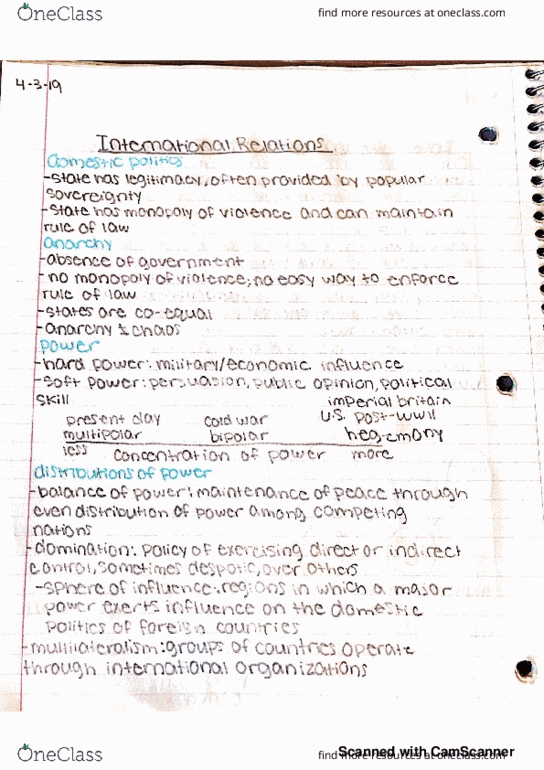 OneClass
find more resources at oneclass.com
4-3-19
International Relations
domestic politics
-state has legitimacy, often provided by popular
sovereignty
-state has monopoly of violence and can maintain
rule of law
anarchy
-absence of government
-no monopoly of violence; no easy way to enforce
rule of law
-states are co-equal
-anarchy ≠ chaos
power
-hard power: military/economic influence
-soft power: persuasion, public opinion, political
skill
imperial britain
present day cold war U.S. post-WWII
multipolar bipolar hegemony
less concentration of power more
distributions of power
-balance of power: maintenance of peace through
even distribution of power among competing
nations
-domination: policy of exercising direct or indirect
control, sometimes despotic, over others
-sphere of influence: regions in which a major
power exerts influence on the domestic
politics of foreign countries
-multilateralism: groups of countries operate
through international organizations
OneClass
find more resources at oneclass.com
Scanned with CamScanner